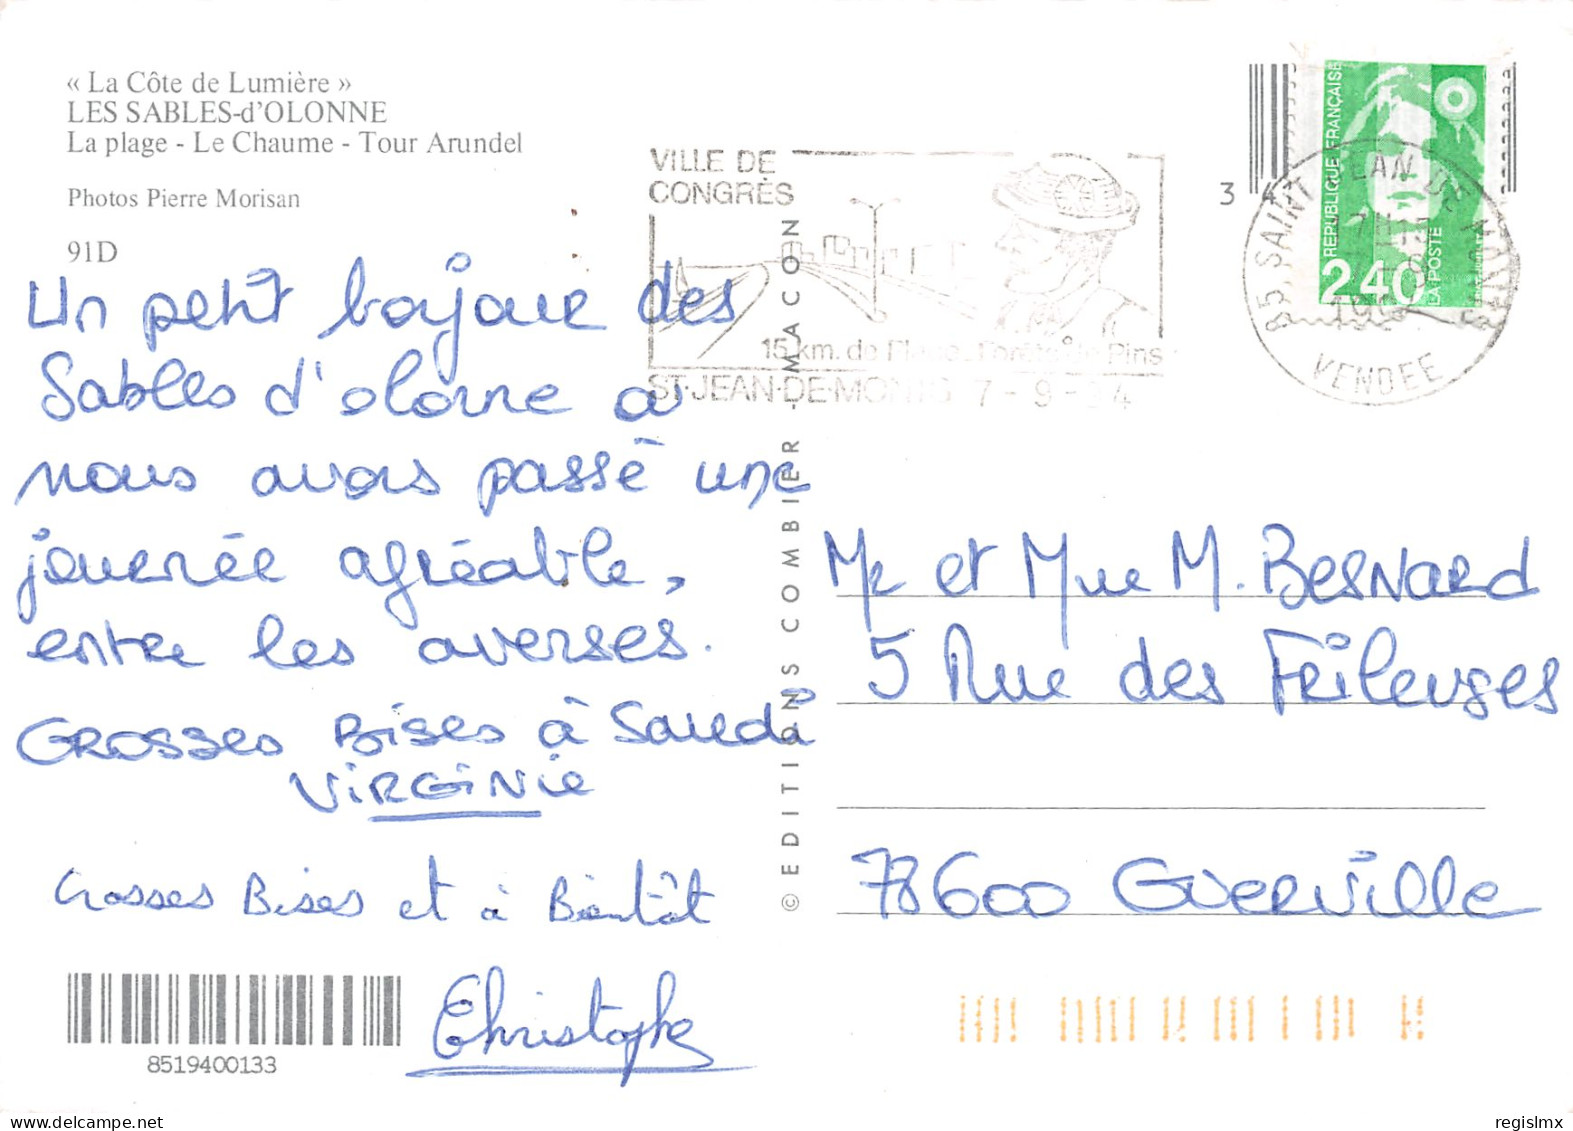 « La Côte de Lumière »
LES SABLES-d'OLONNE
La plage - Le Chaume - Tour Arundel
Photos Pierre Morisan
91D
Un petit bonjour des
Sables d'olonne où
nous avons passé une
journée agréable,
entre les averses.
GROSSES BISES à Samedi
VIRGINIE
Grosses Bises et à Bientôt
Christophe
8519400133
© EDITIONS COMBIER - MACON
VILLE DE
CONGRÈS
15 km. de Plage - Forêts de Pins
ST-JEAN-DE-MONTS 7-9-94
3 4
REPUBLIQUE FRANÇAISE
2,40
LA POSTE
85 SAINT JEAN DE MONTS
VENDEE
Mr et Mme M. BESNARD
5 Rue des Frileuses
78600 GUERVille
regislmx